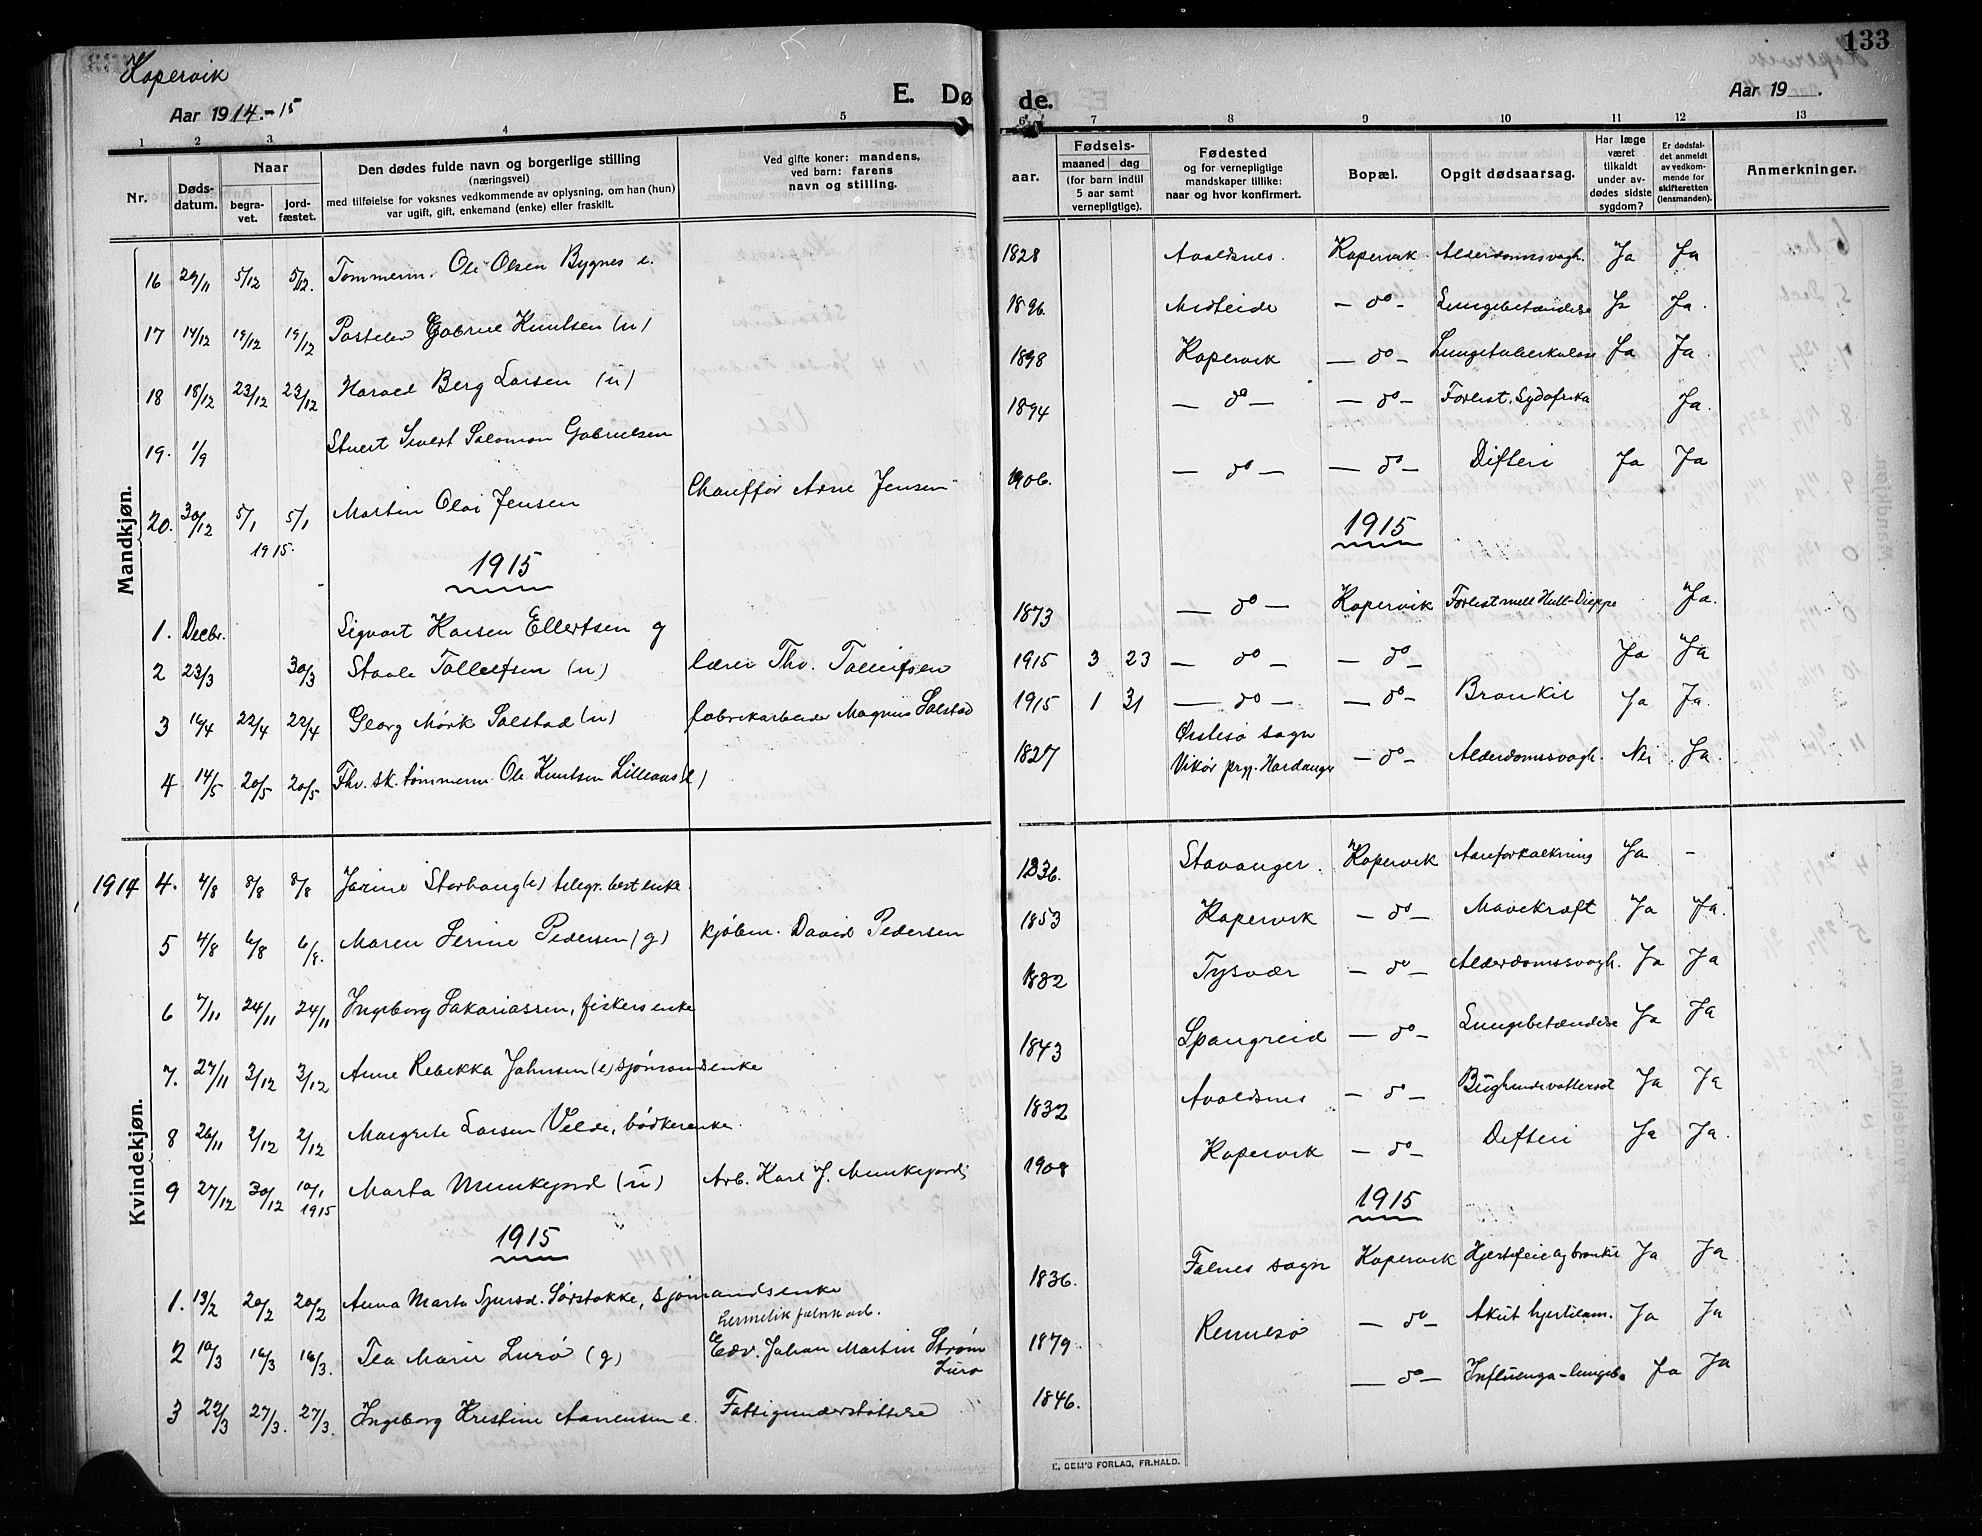 Kopervik
133
Aar 1914.-15
E. Dø
de.
Aar 19 .
1 2 3. 4 5 6. 7 8 9 10 11 12 13
Nr.
Døds-
datum.
Naar
begra-
vet.
jord-
fæstet.
Den dødes fulde navn og borgerlige stilling
(næringsvei)
med tilføielse for voksnes vedkommende av oplysning, om han (hun)
var ugift, gift, enkemand (enke) eller fraskilt.
Ved gifte koner: mandens,
ved barn: farens
navn og stilling.
aar.
Fødsels-
maaned dag
(for barn indtil
5 aar samt
vernepligtige).
Fødested
og for vernepligtige
mandskaper tillike:
naar og hvor konfirmert.
Bopæl.
Opgit dødsaarsag.
Har læge
været
tilkaldt
under av-
dødes sidste
sygdom?
Er dødsfal-
det anmeldt
av vedkom-
mende for
skifteretten
(lensmanden).
Anmerkninger.
Mandkjøn.
16 29/11 5/12 5/12. Tømmerm. Ole Olsen Bygnes e. 1828 Avaldsnes. Kopervik Alderdomssvagh. Ja Ja
17 14/12 19/12 19/12 Postelev Gabriel Knutsen (u) 1896 — do — Lungebetændelse Ja Ja.
18 18/12 23/12 23/12 Harald Berg Larsen (u) 1898 Kopervik — do — Lungetuberkulose Ja Ja.
19. 1/9 Sivert Salomon Gabrielsen 1894 — do — — do — Forlist. Sydafrika Ja.
20. 30/12 5/1 5/1 1915. Martin Olai Jensen Chauffør Arne Jensen 1906. — do — — do — Difteri Ja Ja
1915 1915
1. Decbr. Sigvart Karsen Ellertsen g 1873 — do — Kopervik Forlist mell Hull-Dieppe Ja.
2 23/3 30/3 Staale Tollefsen (u) lærer Thv. Tollefsen 1915 3 23 — do — — do — Ja Ja
3 16/4 22/4 22/4 Georg Mørk Solstad (u) fabrikarbeider Magnus Solstad 1915 1 31 — do — — do — Bronkit Ja Ja.
4 14/5 20/5 20/5 Fhv. sk. tømmerm. Ole Knutsen Lilleaas (e) 1827 sogn Vikør prgj. Hardanger — do — Alderdomssvagh. Nei Ja.
Kvindekjøn.
1914 4. 4/8 8/8 8/8 Jorine Storhaug (e) telegr. best enke. 1836. Stavanger. Kopervik Aareforkalkning Ja -
5 4/8 6/8 6/8. Maren Serine Pedersen (g) kjøbm. David Pedersen 1853 Kopervik — do — Mavekræft Ja Ja.
6 7/11 24/11 24/11 Ingeborg Sakariassen, fiskers enke 1832 Tysvær — do — Alderdomssvagh. Ja Ja
7. 27/11 3/12 3/12 Anne Rebekka Johnsen (e) sjømandsenke 1843 Spangreid — do — Lungebetændelse Ja Ja
8 26/11 2/12 2/12 Margrete Larsen Velde, bødkerenke. 1832 Avaldsnes — do — Bughindevattersot Ja Ja
9 27/12 30/12 10/1 1915 Marta Munkejord (u) Arb. Karl J. Munkejord 1908 Kopervik — do — Difteri Ja Ja.
1915 1915
1. 13/2 20/2 20/2 Anna Marta Sjursd. Sørstokke, sjømandsenke 1836. Falnes sogn Kopervik Hjertefeil og bronkit Ja Ja
2 10/3 16/3 16/3. Tea Marie Lurø (g) hermetik fabrik arb. Edv. Johan Martin Strøm Lurø 1879. Rennesø — do — Akut hjertelam. Ja Ja
3 22/3 27/3. 27/3. Ingeborg Kristine Aanensen e. Fattigunderstøttelse 1846. — do — Influenza-lungeb. Ja Ja
E. SEM'S FORLAG, FR.HALD.